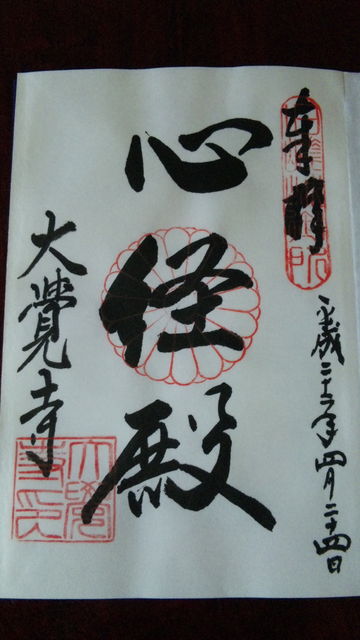 奉拝
平成二十三年四月二十四日
心経殿
大覺寺